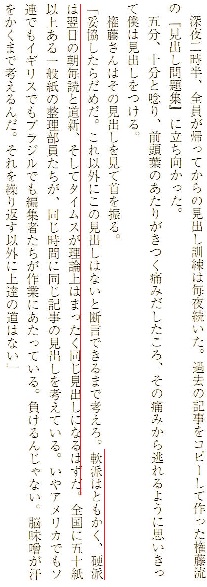 深夜二時半、全員が帰ってからの見出し訓練は毎夜続いた。過去の記事をコピーして作った権藤流
の『見出し問題集』に立ち向かった。
五分、十分と唸り、前頭葉のあたりがきつく痛みだしたころ、その痛みから逃れるように思いきっ
て僕は見出しをつける。
権藤さんはその見出しを見て首を振る。
「妥協したらだめだ。これ以外にこの見出しはないと断言できるまで考えろ。軟派はともかく、硬派
は翌日の朝毎読と道新、そしてタイムスが理論上はまったく同じ見出しになるはずだ。全国に五十紙
以上ある一般紙の整理部員たちが、同じ時間に同じ記事の見出しを考えている。いやアメリカでもソ
連でもイギリスでもブラジルでも編集者たちが作業にあたっている。負けるんじゃない。脳味噌が汗
をかくまで考えるんだ。それを繰り返す以外に上達の道はない」